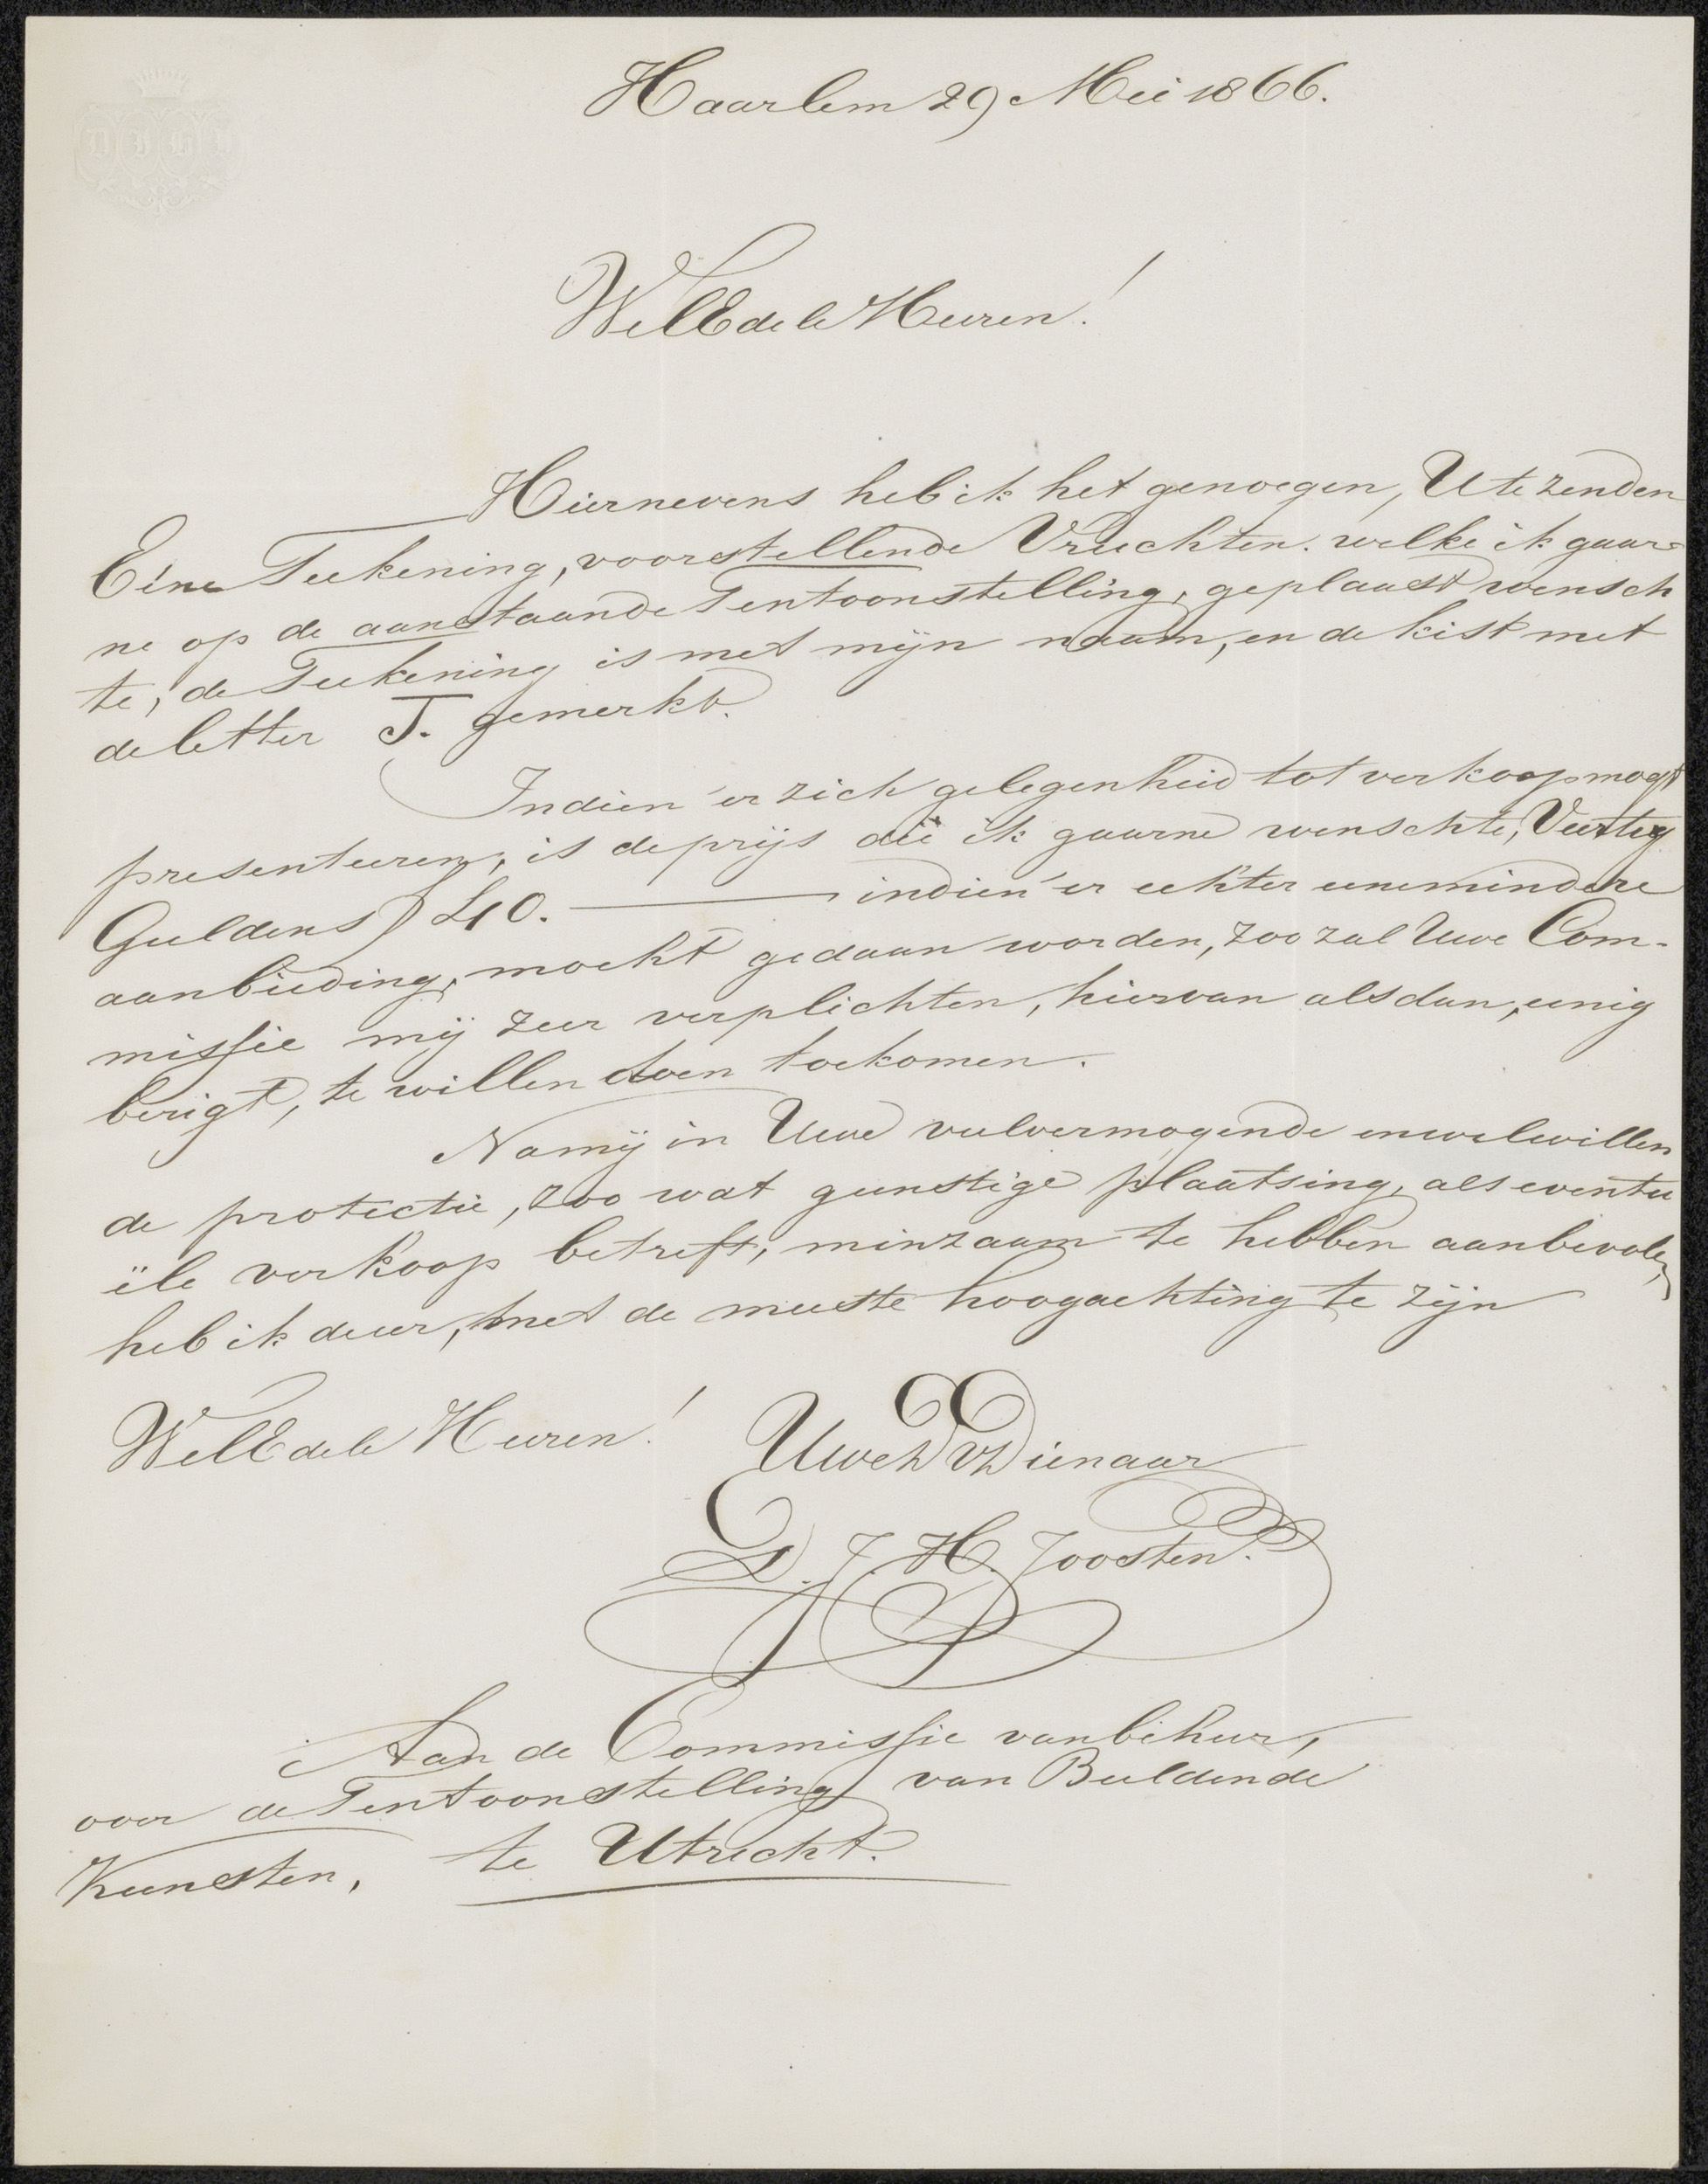 Haarlem 29 Mei 1866.
WelEdele Heeren!
Hiernevens heb ik het genoegen, U te zenden
Eéne Teekening, voorstellende Vruchten. welke ik gaar-
ne op de aanstaande Tentoonstelling, geplaatst wensch
te, de Teekening is met mijn naam, en de kist met
de letter J. gemerkt.
Indien er zich gelegenheid tot verkoop mogt
presenteeren, is de prijs die ik gaarne wenschte, Veertig
Guldens ƒ 40. — indien er echter eene mindere
aanbieding, mocht gedaan worden, zoo zal Uwe Com-
missie mij zeer verplichten, hiervan alsdan, eenig
berigt, te willen doen toekomen.
Na mij in Uwe veelvermogende en welwillen
de protectie, zoo wat gunstige plaatsing, als eventu
ëlle verkoop betreft, minzaam te hebben aanbevolen,
heb ik de eer, met de meeste hoogachting te zijn
WelEdele Heeren!
UwEd Dienaar
D. J. H. Joosten.
Aan de Commissie van beheer,
over de Tentoonstelling van Beeldende
Kunsten, te Utrecht.